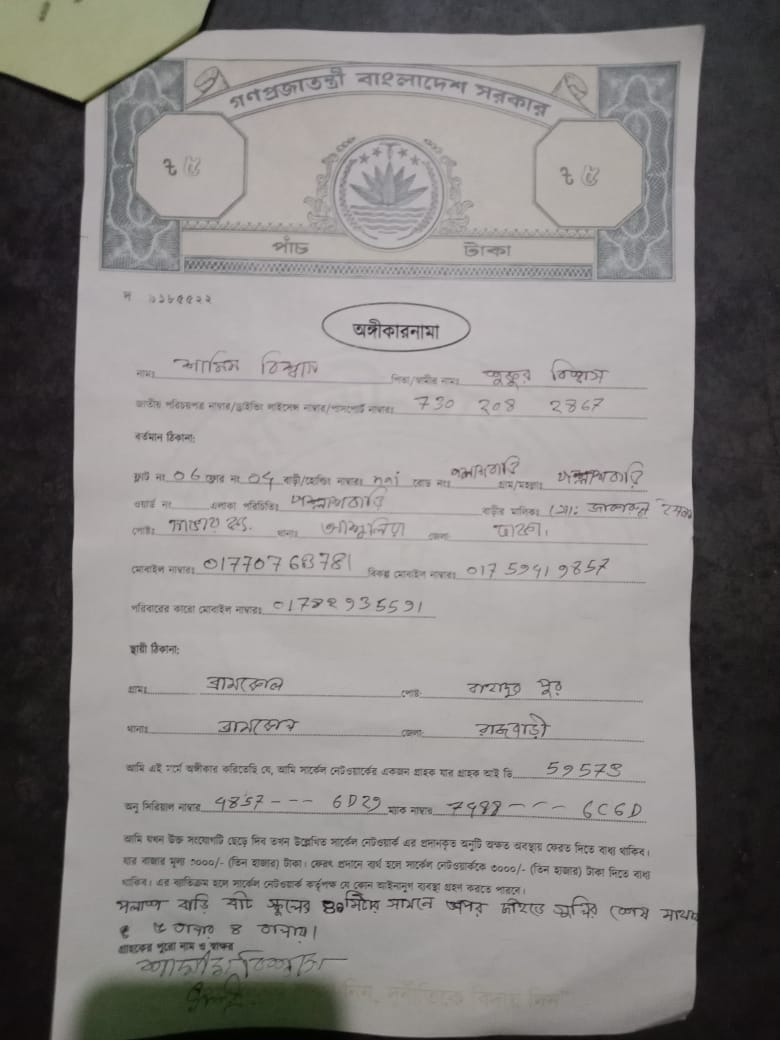 গণপ্রজাতন্ত্রী বাংলাদেশ সরকার
৳ ৫ ৳ ৫
পাঁচ টাকা
অঙ্গীকারনামা
নামঃ শামিম বিশ্বাস পিতা/স্বামীর নামঃ শুকুর বিশ্বাস
জাতীয় পরিচয়পত্র নাম্বার/ড্রাইভিং লাইসেন্স নাম্বার/পাসপোর্ট নাম্বারঃ 730 208 2867
বর্তমান ঠিকানা:
ফ্লাট নং 06 ফ্লোর নং 04 বাড়ী/হোল্ডিং নাম্বারঃ nai রোড নংঃ পলাশবাড়ি গ্রাম/মহল্লাঃ পলাশবাড়ি
ওয়ার্ড নং এলাকা পরিচিতিঃ পলাশবাড়ি বাড়ীর মালিকঃ মো:
পোষ্টঃ থানাঃ আশুলিয়া জেলাঃ ঢাকা।
মোবাইল নাম্বারঃ 01770763781 বিকল্প মোবাইল নাম্বারঃ 01759419857
পরিবারের কারো মোবাইল নাম্বারঃ 01782935591
স্থায়ী ঠিকানা:
গ্রামঃ পোষ্ট: পুর
থানাঃ জেলা: রাজবাড়ী
আমি এই মর্মে অঙ্গীকার করিতেছি যে, আমি সার্কেল নেটওয়ার্কের একজন গ্রাহক যার গ্রাহক আই ডি 59573
অনু সিরিয়াল নাম্বার 4857--- 6D29 ম্যাক নাম্বার 7498--- 6C6D
আমি যখন উক্ত সংযোগটি ছেড়ে দিব তখন উল্লেখিত সার্কেল নেটওয়ার্ক এর প্রদানকৃত অনুটি অক্ষত অবস্থায় ফেরত দিতে বাধ্য থাকিব।
যার বাজার মূল্য ৩০০০/- (তিন হাজার) টাকা। ফেরৎ প্রদানে ব্যর্থ হলে সার্কেল নেটওয়ার্ককে ৩০০০/- (তিন হাজার) টাকা দিতে বাধ্য
থাকিব। এর ব্যতিক্রম হলে সার্কেল নেটওয়ার্ক কর্তৃপক্ষ যে কোন আইনানুগ ব্যবস্থা গ্রহণ করতে পারবে।
পলাশ বাড়ি স্কুলের সামনে শেষ মাথায়
৫ তালার ৪ তালায়।
গ্রাহকের পুরো নাম ও স্বাক্ষর